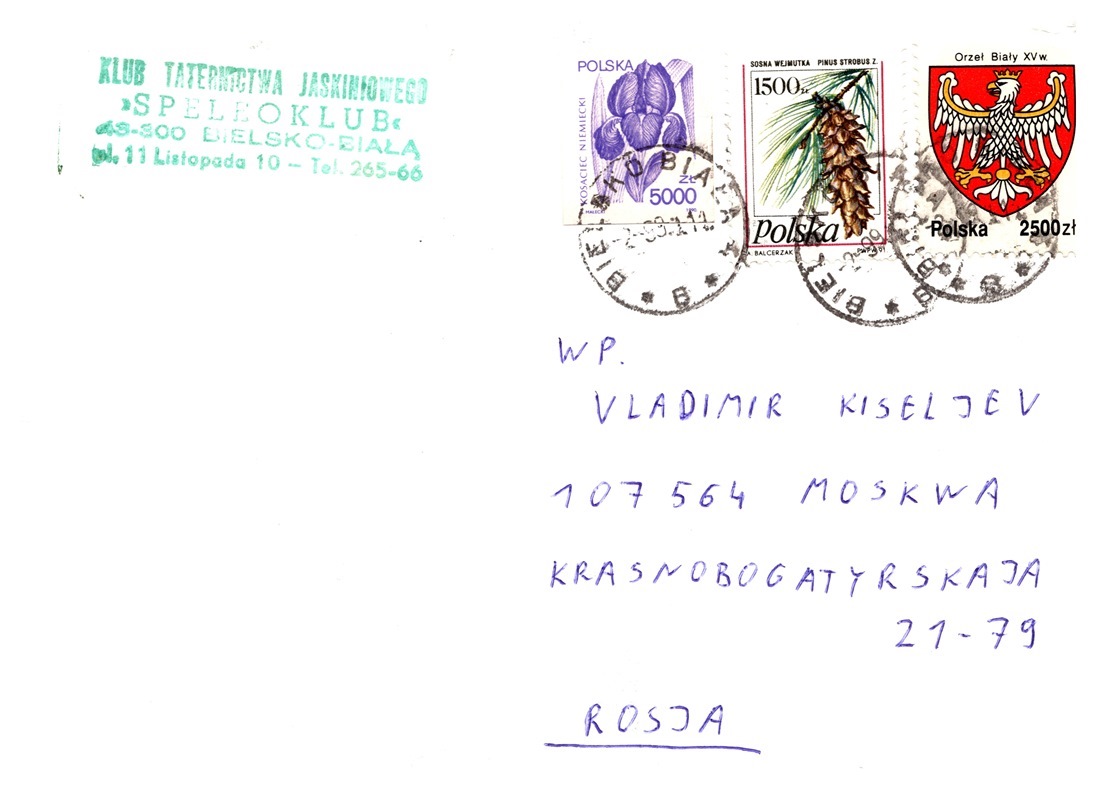 KLUB TATERNICTWA JASKINIOWEGO
»SPELEOKLUB«
43-300 BIELSKO-BIAŁA
pl. 11 Listopada 10 – Tel. 265-66
POLSKA
KOSACIEC NIEMIECKI
ZŁ
5000
SOSNA WEJMUTKA PINUS STROBUS Z.
1500zł
Polska
A. BALCERZAK
Orzeł Biały XVw.
Polska 2500zł
BIELSKO BIAŁA
B
WP.
VLADIMIR KISELJEV
107 564 MOSKWA
KRASNOBOGATYRSKAJA
21-79
ROSJA